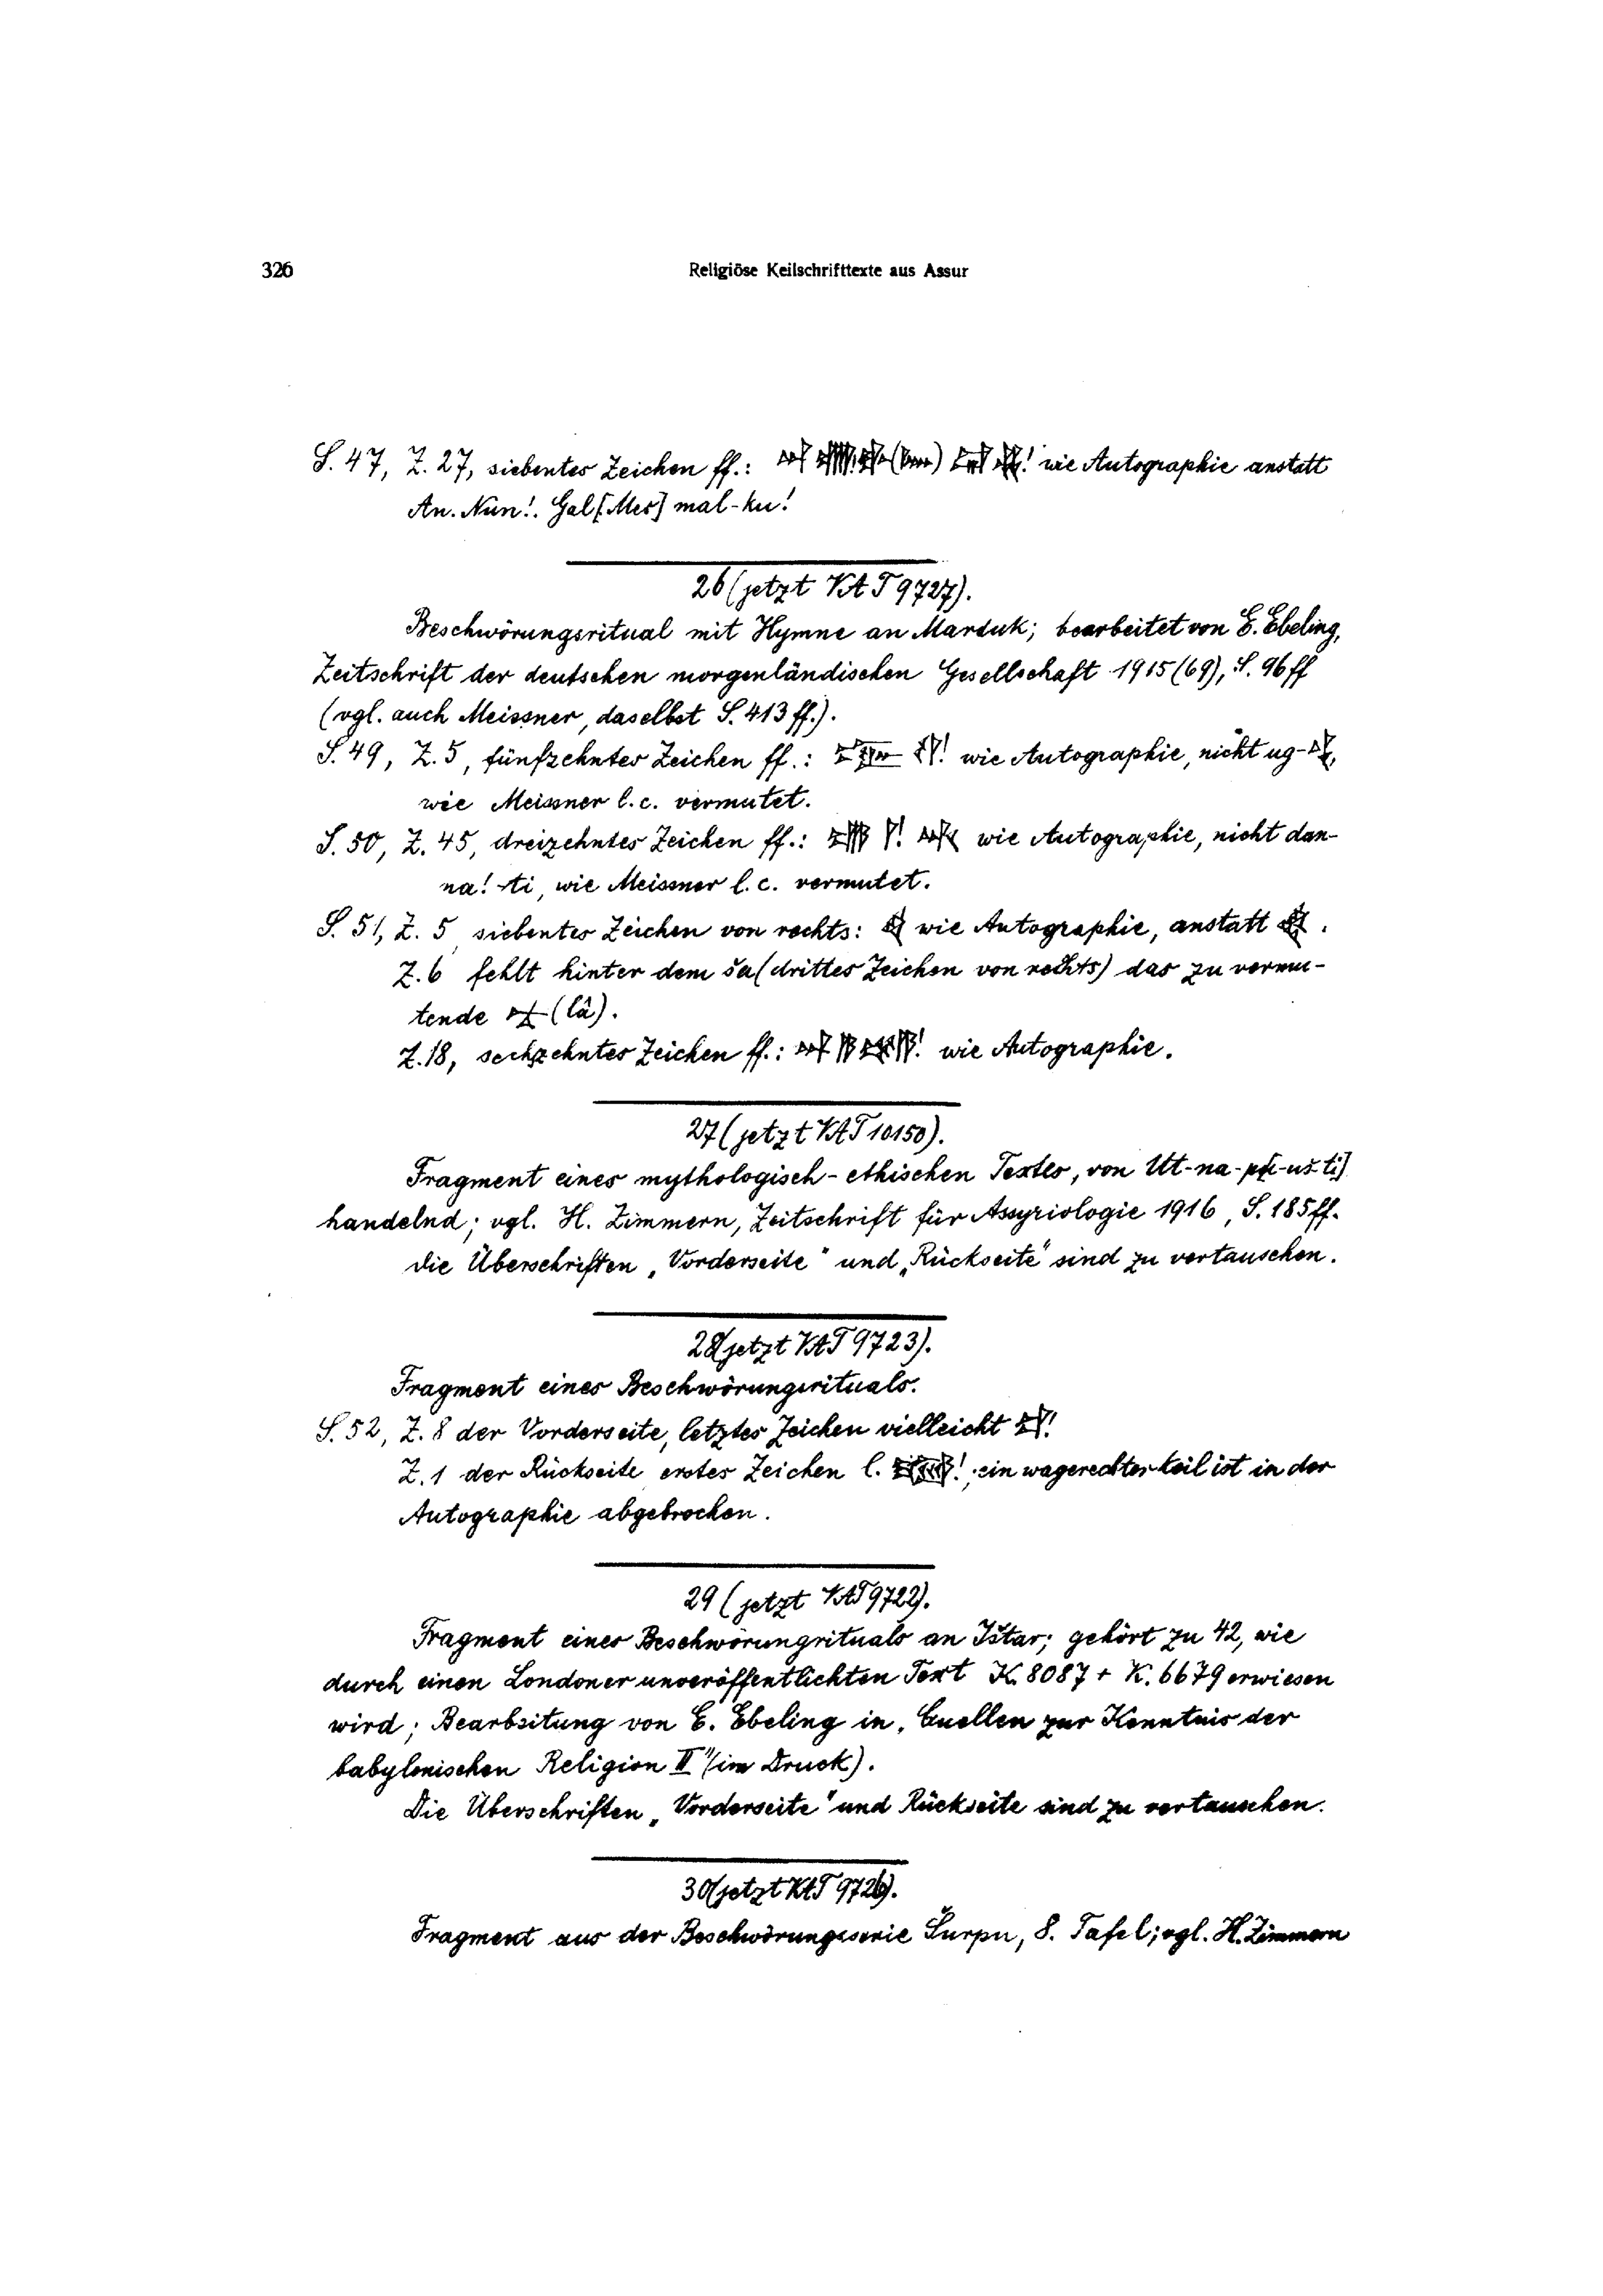 326
Religiöse Keilschrifttexte aus Assur
S. 47, Z. 27, siebentes Zeichen ff.: ! wie Autographie anstatt
An. Nun!. Gal [Mes] mal-ku!
26 (jetzt VAT 9727).
Beschwörungsritual mit Hymne an Marduk; bearbeitet von E. Ebeling,
Zeitschrift der deutschen morgenländischen Gesellschaft 1915 (69), S. 96 ff
(vgl. auch Meissner, daselbst S. 413 ff.).
S. 49, Z. 5, fünfzehntes Zeichen ff.: ! wie Autographie, nicht ug-
wie Meissner l. c. vermutet.
S. 50, Z. 45, dreizehntes Zeichen ff.: ! wie Autographie, nicht dan-
na!-ti, wie Meissner l. c. vermutet.
S. 51, Z. 5 siebentes Zeichen von rechts: wie Autographie, anstatt .
Z. 6 fehlt hinter dem ša (drittes Zeichen von rechts) das zu vermu-
tende (lâ).
Z. 18, sechzehntes Zeichen ff.: ! wie Autographie.
27 (jetzt VAT 10150).
Fragment eines mythologisch-ethischen Textes, von Ut-na-pí-uš-ti]
handelnd; vgl. H. Zimmern, Zeitschrift für Assyriologie 1916, S. 185 ff.
die Überschriften „Vorderseite" und „Rückseite" sind zu vertauschen.
28 (jetzt VAT 9723).
Fragment eines Beschwörungsrituals.
S. 52, Z. 8 der Vorderseite, letztes Zeichen vielleicht !
Z. 1 der Rückseite erstes Zeichen l. !; ein wagerechter Keil ist in der
Autographie abgebrochen.
29 (jetzt VAT 9722).
Fragment eines Beschwörungrituals an Ištar; gehört zu 42, wie
durch einen Londoner unveröffentlichten Text K. 8087 + K. 6679 erwiesen
wird; Bearbeitung von E. Ebeling in „Quellen zur Kenntnis der
babylonischen Religion II" (im Druck).
Die Überschriften „Vorderseite" und Rückseite sind zu vertauschen.
30 (jetzt VAT 9726).
Fragment aus der Beschwörungsserie Šurpu, 8. Tafel; vgl. H. Zimmern